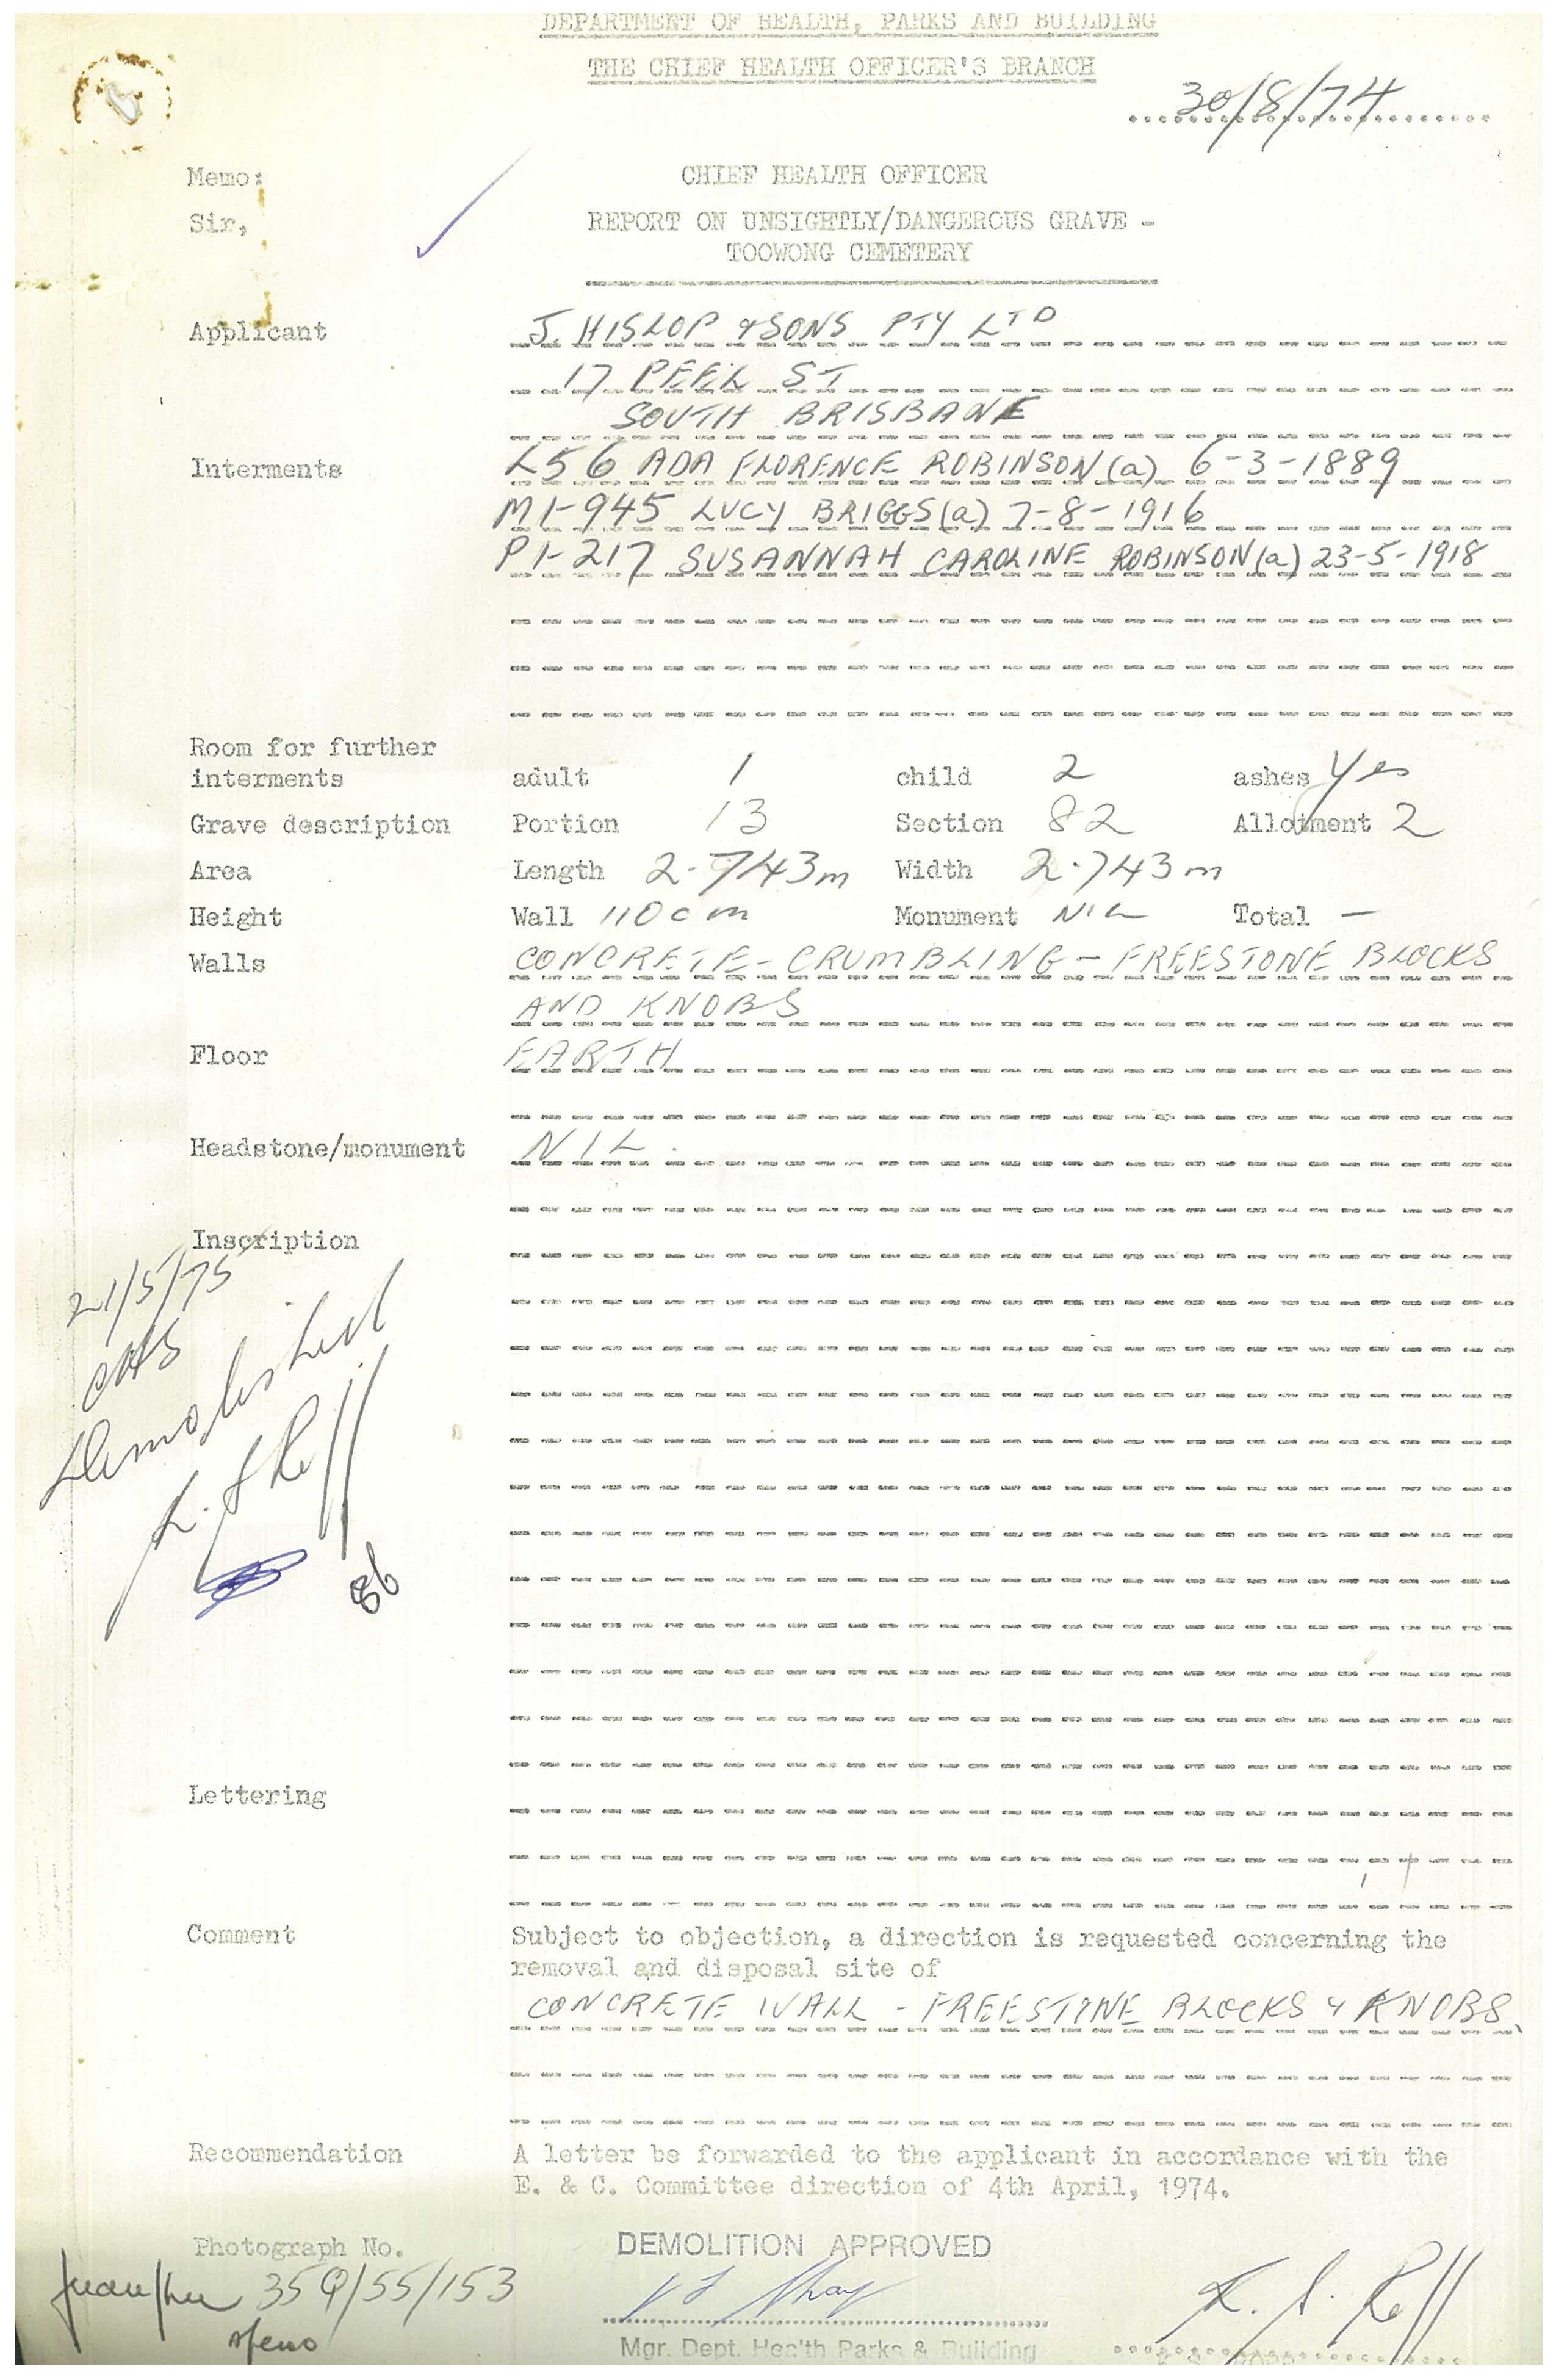 DEPARTMENT OF HEALTH, PARKS AND BUILDING
THE CHIEF HEALTH OFFICER'S BRANCH
30/8/74
Memo: CHIEF HEALTH OFFICER
Sir, REPORT ON UNSIGHTLY/DANGEROUS GRAVE -
TOOWONG CEMETERY
Applicant J. HISLOP & SONS PTY LTD
17 PEEL ST
SOUTH BRISBANE
Interments L56 ADA FLORENCE ROBINSON (a) 6-3-1889
M1-945 LUCY BRIGGS (a) 7-8-1916
P1-217 SUSANNAH CAROLINE ROBINSON (a) 23-5-1918
Room for further
interments adult 1 child 2 ashes Yes
Grave description Portion 13 Section 82 Allotment 2
Area Length 2.743m Width 2.743m
Height Wall 110cm Monument NIL Total —
Walls CONCRETE - CRUMBLING - FREESTONE BLOCKS
AND KNOBS
Floor EARTH
Headstone/monument NIL.
Inscription
21/5/75
Demolished
86
Lettering
Comment Subject to objection, a direction is requested concerning the
removal and disposal site of
CONCRETE WALL - FREESTONE BLOCKS & KNOBS.
Recommendation A letter be forwarded to the applicant in accordance with the
E. & C. Committee direction of 4th April, 1974.
Photograph No. DEMOLITION APPROVED
35Q/55/153
Steno
Mgr. Dept. Health Parks & Building